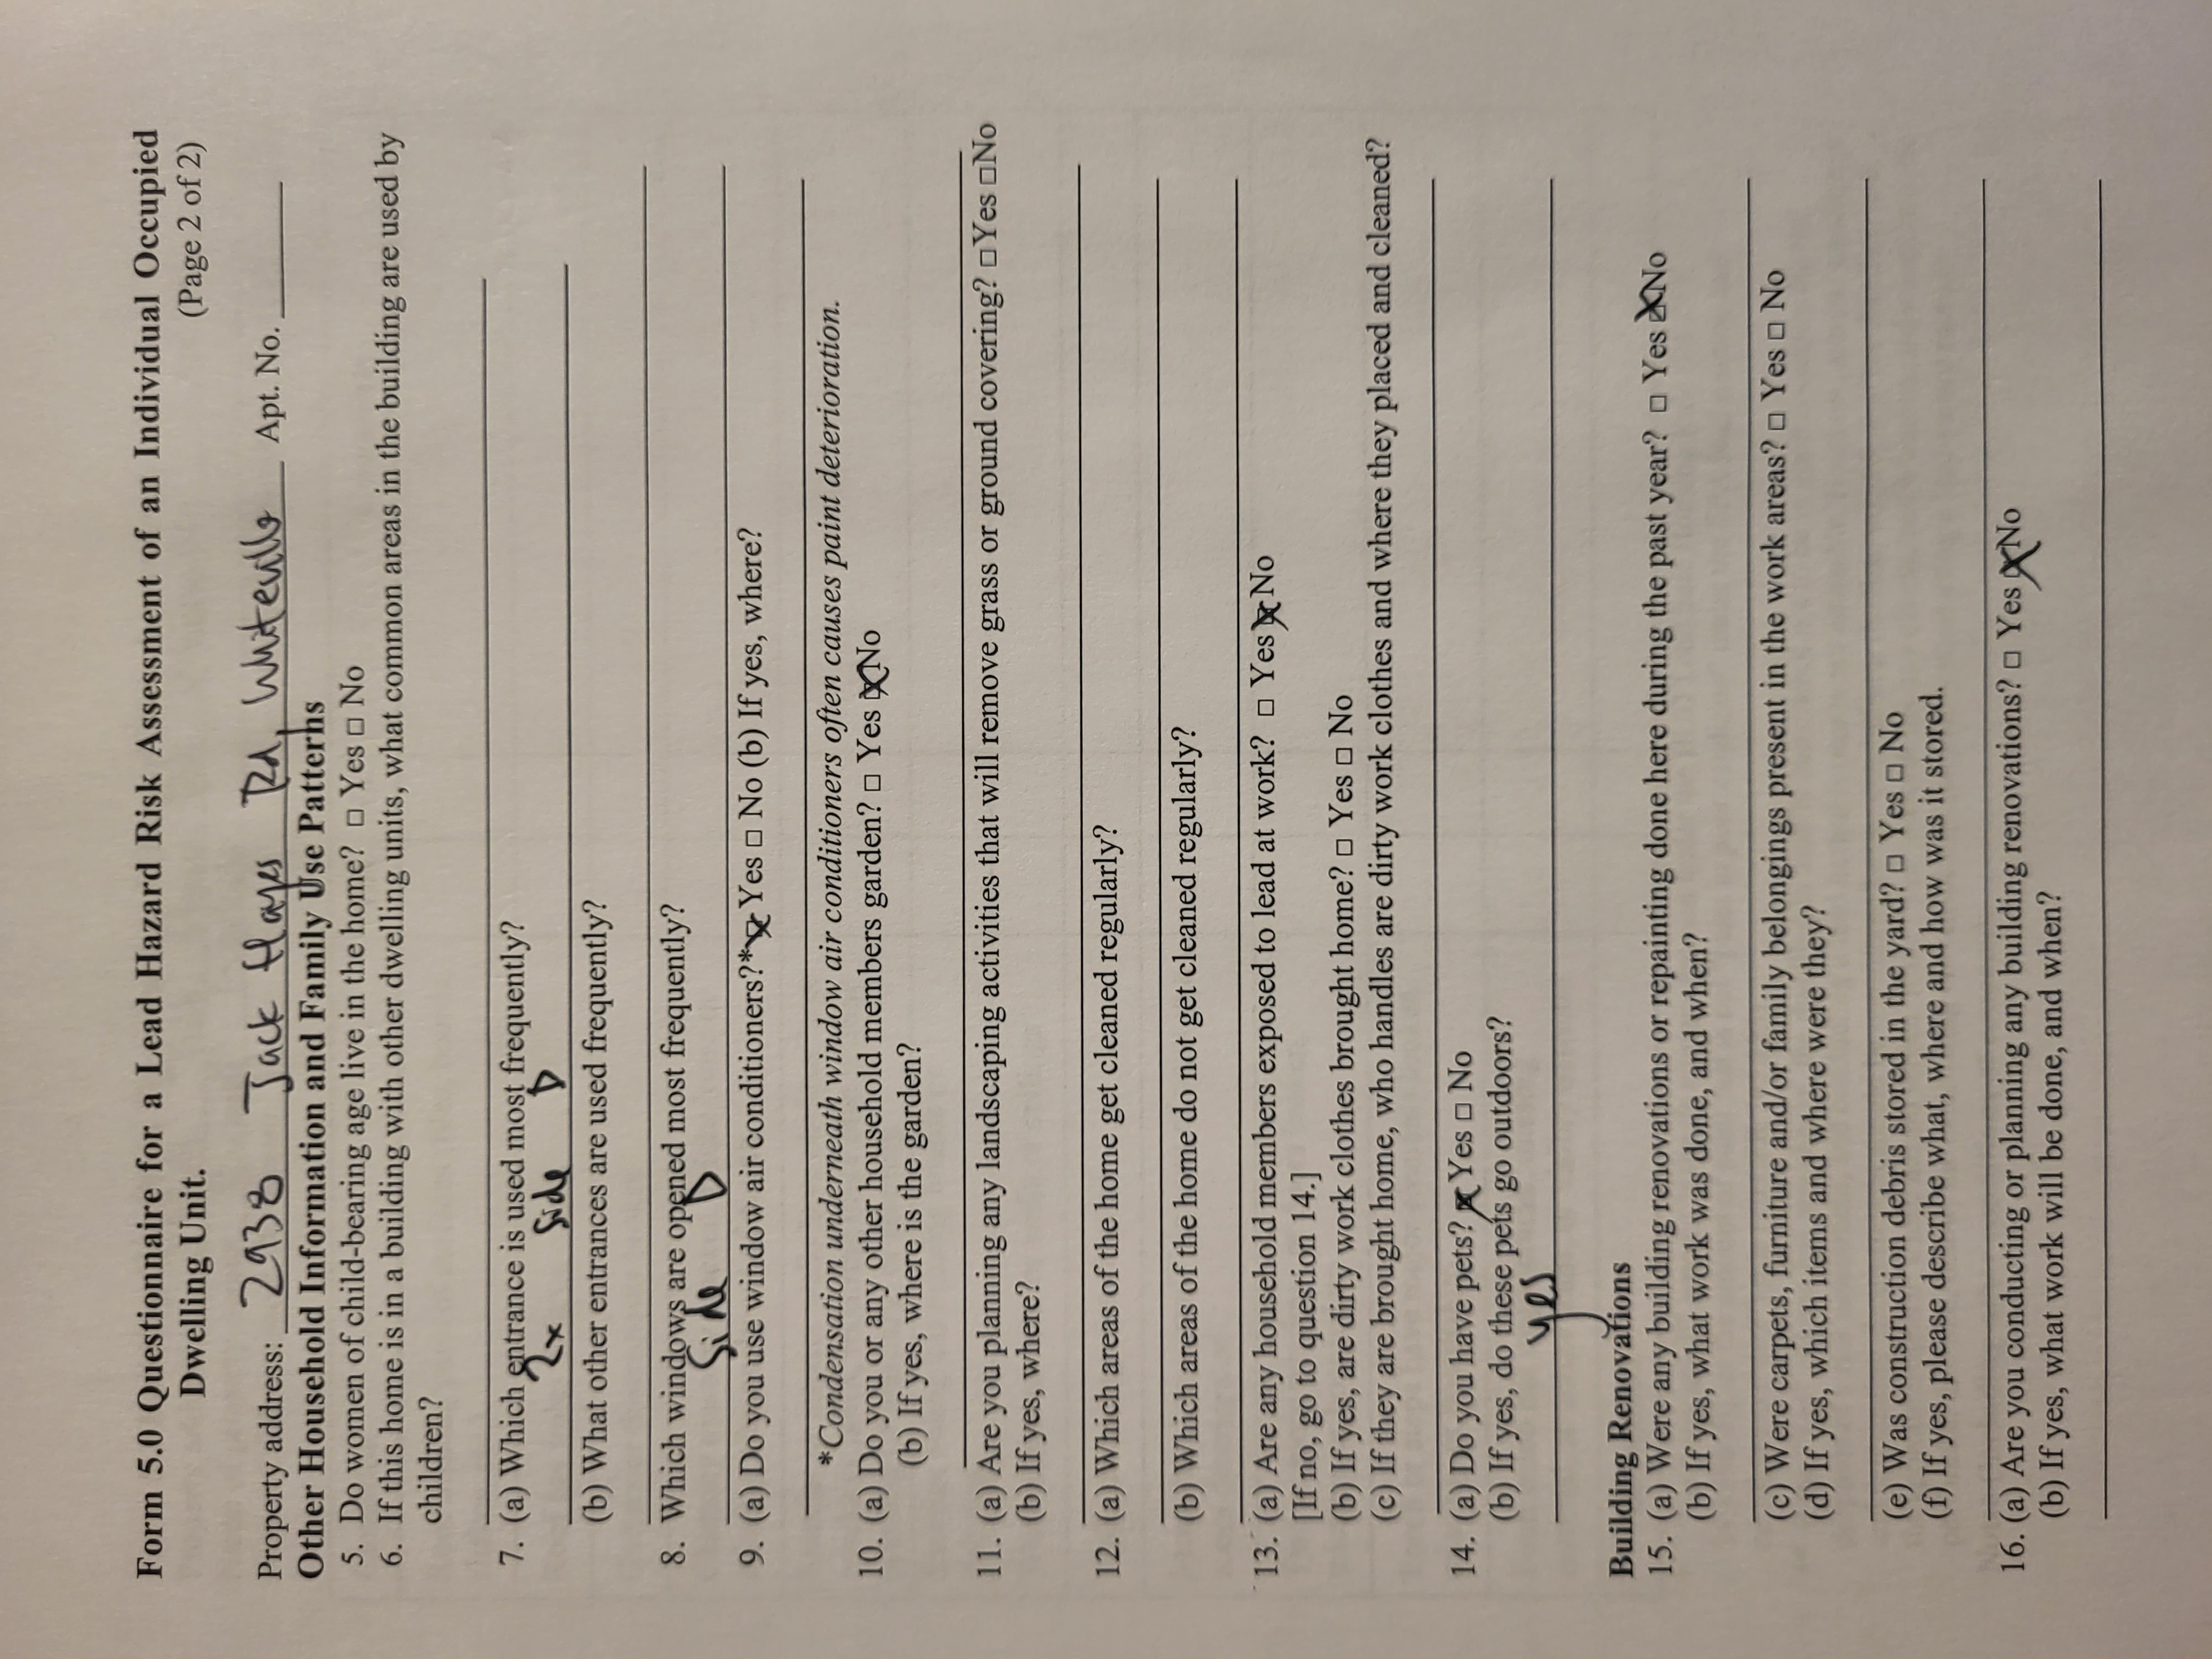 Form 5.0 Questionnaire for a Lead Hazard Risk Assessment of an Individual Occupied
Dwelling Unit. (Page 2 of 2)
Property address: 2938 Jack Hayes Rd, Whiteville Apt. No. ____
Other Household Information and Family Use Patterns
5. Do women of child-bearing age live in the home? □ Yes □ No
6. If this home is in a building with other dwelling units, what common areas in the building are used by
children?
7. (a) Which entrance is used most frequently?
2x Side D
(b) What other entrances are used frequently?
8. Which windows are opened most frequently?
Side D
9. (a) Do you use window air conditioners?* ☒ Yes □ No (b) If yes, where?
*Condensation underneath window air conditioners often causes paint deterioration.
10. (a) Do you or any other household members garden? □ Yes ☒ No
(b) If yes, where is the garden?
11. (a) Are you planning any landscaping activities that will remove grass or ground covering? □Yes □No
(b) If yes, where?
12. (a) Which areas of the home get cleaned regularly?
(b) Which areas of the home do not get cleaned regularly?
13. (a) Are any household members exposed to lead at work? □ Yes ☒ No
[If no, go to question 14.]
(b) If yes, are dirty work clothes brought home? □ Yes □ No
(c) If they are brought home, who handles are dirty work clothes and where they placed and cleaned?
14. (a) Do you have pets? ☒ Yes □ No
(b) If yes, do these pets go outdoors?
yes
Building Renovations
15. (a) Were any building renovations or repainting done here during the past year? □ Yes ☒ No
(b) If yes, what work was done, and when?
(c) Were carpets, furniture and/or family belongings present in the work areas? □ Yes □ No
(d) If yes, which items and where were they?
(e) Was construction debris stored in the yard? □ Yes □ No
(f) If yes, please describe what, where and how was it stored.
16. (a) Are you conducting or planning any building renovations? □ Yes ☒ No
(b) If yes, what work will be done, and when?